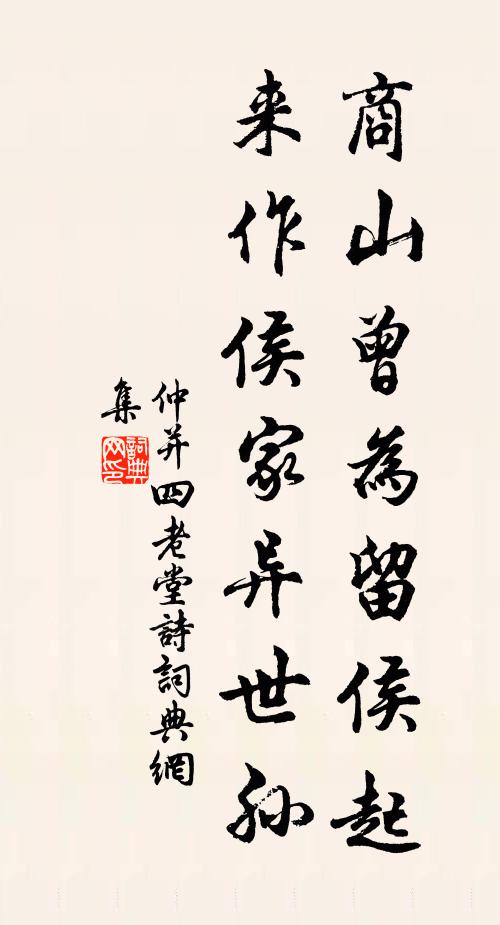 商山曾為留侯起
来作侯家异世孙
仲并四老堂詩詞典網
集
詞典網印